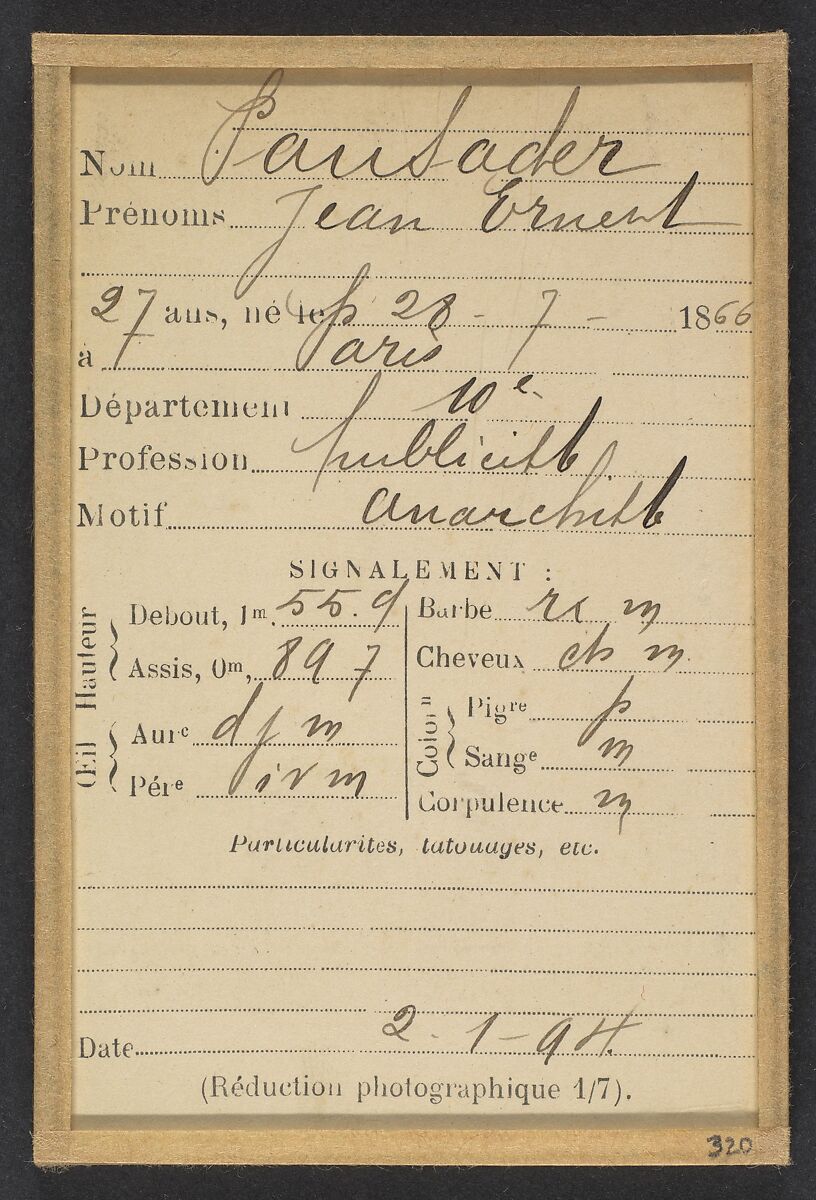 Nom Pausader
Prénoms Jean Ernest
27 ans, né le 28 - 7 - 1866
à Paris
Département 10e
Profession publiciste
Motif anarchiste
SIGNALEMENT :
Hauteur
Debout, 1m. 55.9
Assis, 0m, 89 7
Œil
Aure dj m
Pére iv m
Barbe rx m
Cheveux ch m
Coloron
Pigre p
Sange m
Corpulence m
Particularités, tatouages, etc.
Date 2-1-94.
(Réduction photographique 1/7).
320